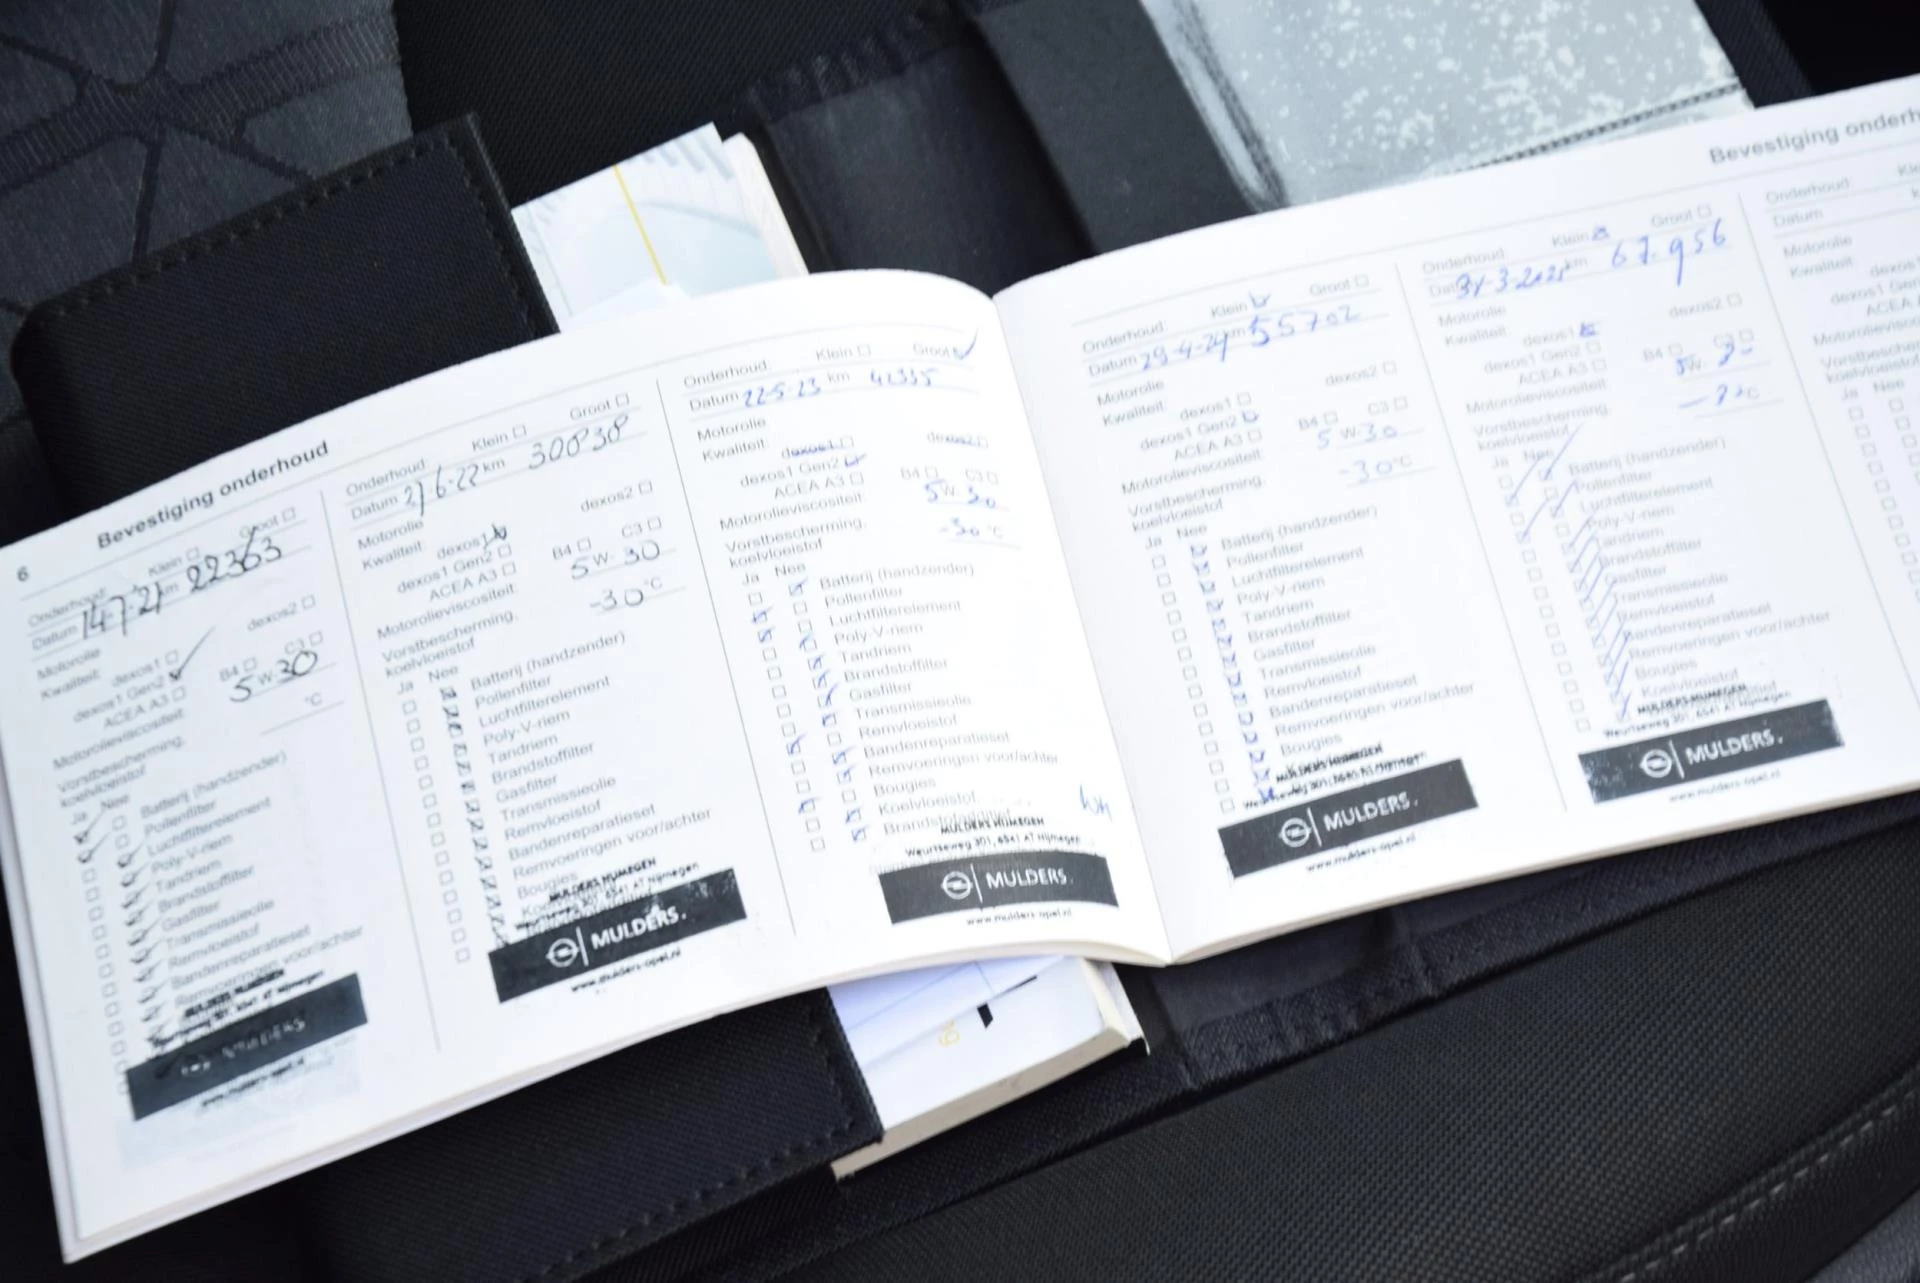 6
Bevestiging onderhoud
Onderhoud: Klein Groot
Datum 14-7-21 km 22363
Motorolie
Kwaliteit: dexos1 dexos2
dexos1 Gen2
ACEA A3 B4 C3
Motorolieviscositeit: 5 W- 30
Vorstbescherming, °C
koelvloeistof
Ja Nee
Batterij (handzender)
Pollenfilter
Luchtfilterelement
Poly-V-riem
Tandriem
Brandstoffilter
Gasfilter
Transmissieolie
Remvloeistof
Bandenreparatieset
Remvoeringen voor/achter
MULDERS NIJMEGEN
MULDERS
www.mulders-opel.nl
Onderhoud: Klein Groot
Datum 21-6-22 km 30838
Motorolie
Kwaliteit: dexos1 dexos2
dexos1 Gen2
ACEA A3 B4 C3
Motorolieviscositeit: 5 W- 30
Vorstbescherming, -30 °C
koelvloeistof
Ja Nee
Batterij (handzender)
Pollenfilter
Luchtfilterelement
Poly-V-riem
Tandriem
Brandstoffilter
Gasfilter
Transmissieolie
Remvloeistof
Bandenreparatieset
Remvoeringen voor/achter
Bougies
MULDERS NIJMEGEN
Weurtseweg 301, 6541 AT Nijmegen
MULDERS.
www.mulders-opel.nl
Onderhoud: Klein Groot
Datum 22-5-23 km 42335
Motorolie
Kwaliteit: dexos1 dexos2
dexos1 Gen2
ACEA A3 B4 C3
Motorolieviscositeit: 5 W- 30
Vorstbescherming, -30 °C
koelvloeistof
Ja Nee
Batterij (handzender)
Pollenfilter
Luchtfilterelement
Poly-V-riem
Tandriem
Brandstoffilter
Gasfilter
Transmissieolie
Remvloeistof
Bandenreparatieset
Remvoeringen voor/achter
Bougies
Koelvloeistof
Brandstofadditief
MULDERS NIJMEGEN
Weurtseweg 301, 6541 AT Nijmegen
MULDERS.
www.mulders-opel.nl
Bevestiging onderh
Onderhoud: Klein Groot
Datum 29-4-24 km 55702
Motorolie
Kwaliteit: dexos1 dexos2
dexos1 Gen2
ACEA A3 B4 C3
Motorolieviscositeit: 5 W- 30
Vorstbescherming, -30 °C
koelvloeistof
Ja Nee
Batterij (handzender)
Pollenfilter
Luchtfilterelement
Poly-V-riem
Tandriem
Brandstoffilter
Gasfilter
Transmissieolie
Remvloeistof
Bandenreparatieset
Remvoeringen voor/achter
Bougies
MULDERS NIJMEGEN
Weurtseweg 301, 6541 AT Nijmegen
MULDERS.
www.mulders-opel.nl
Onderhoud: Klein Groot
Datum 31-3-2025 km 67.956
Motorolie
Kwaliteit: dexos1 dexos2
dexos1 Gen2
ACEA A3 B4 C3
Motorolieviscositeit: 5W-
Vorstbescherming, °C
koelvloeistof
Ja Nee
Batterij (handzender)
Pollenfilter
Luchtfilterelement
Poly-V-riem
Tandriem
Brandstoffilter
Gasfilter
Transmissieolie
Remvloeistof
Bandenreparatieset
Remvoeringen voor/achter
Bougies
Koelvloeistof
MULDERS NIJMEGEN
Weurtseweg 301, 6541 AT Nijmegen
MULDERS.
www.mulders-opel.nl
Onderhoud:
Datum
Motorolie
Kwaliteit: dexos1
dexos1 Gen
ACEA
Motorolievisco
Vorstbescher
koelvloeistof
Ja Nee